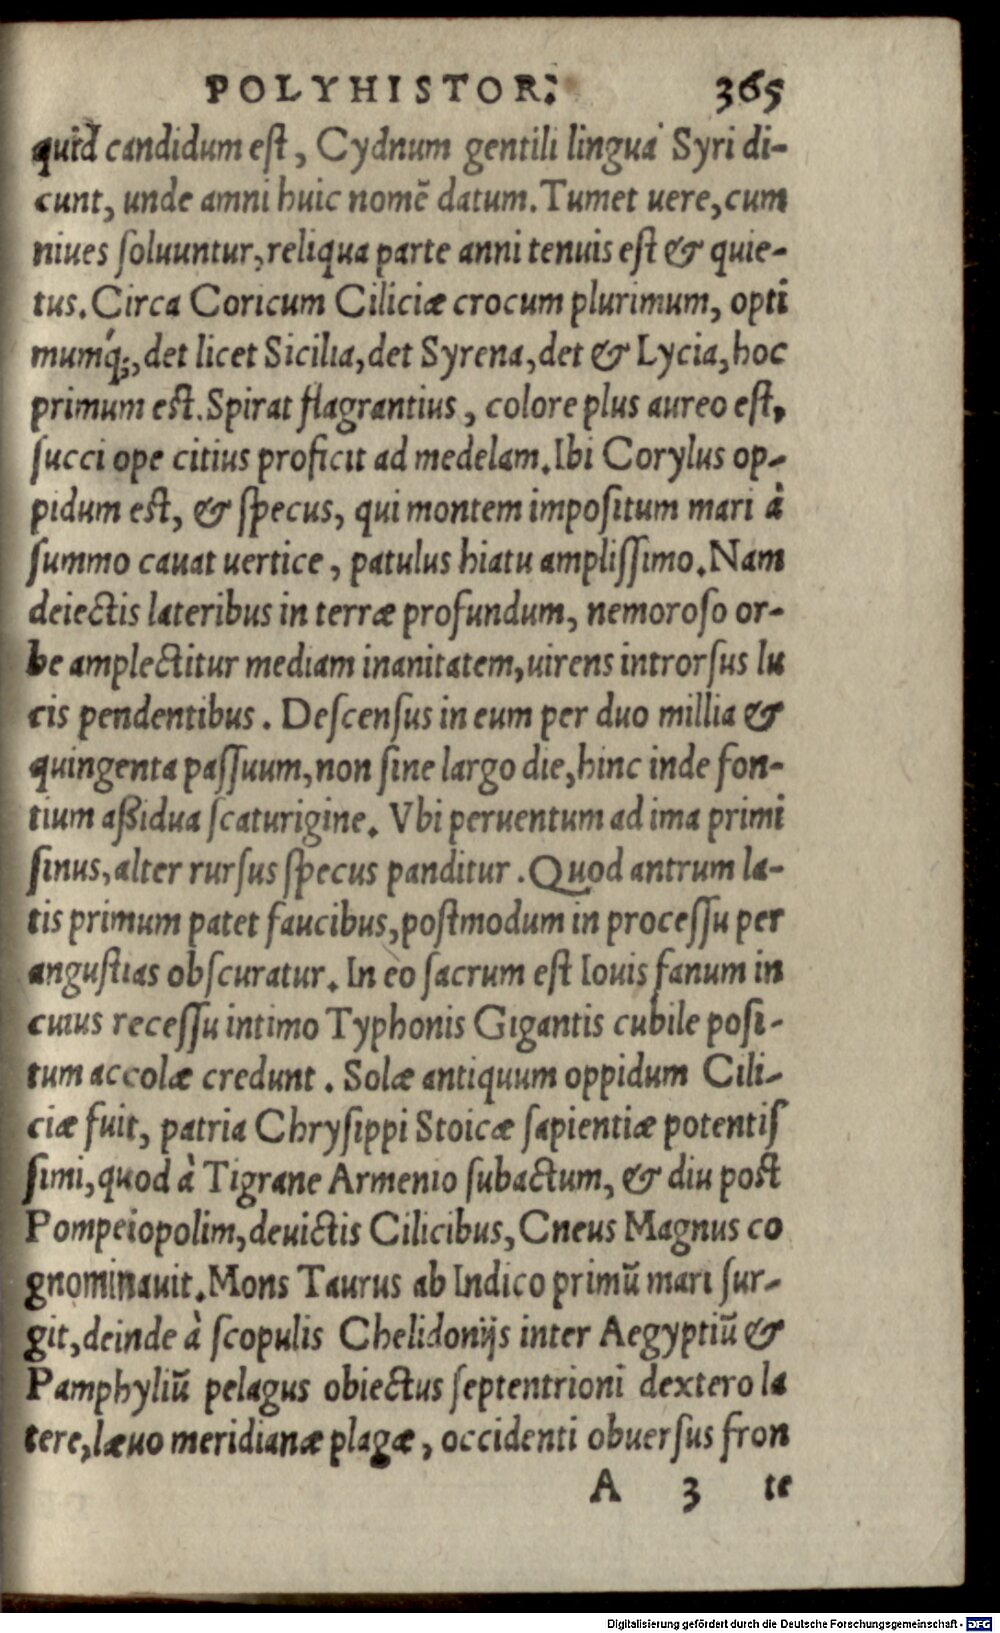 POLYHISTOR. 365
quid candidum est, Cydnum gentili lingua Syri di-
cunt, unde amni huic nomē datum. Tumet uere, cum
niues soluuntur, reliqua parte anni tenuis est & quie-
tus. Circa Coricum Ciliciæ crocum plurimum, opti
mumq́;, det licet Sicilia, det Syrena, det & Lycia, hoc
primum est. Spirat flagrantius, colore plus aureo est,
succi ope citius proficit ad medelam. Ibi Corylus op-
pidum est, & specus, qui montem impositum mari à
summo cauat uertice, patulus hiatu amplissimo. Nam
deiectis lateribus in terræ profundum, nemoroso or-
be amplectitur mediam inanitatem, uirens introrsus lu
cis pendentibus. Descensus in eum per duo millia &
quingenta passuum, non sine largo die, hinc inde fon-
tium aßidua scaturigine. Vbi peruentum ad ima primi
sinus, alter rursus specus panditur. Quod antrum la-
tis primum patet faucibus, postmodum in processu per
angustias obscuratur. In eo sacrum est Iouis fanum in
cuius recessu intimo Typhonis Gigantis cubile posi-
tum accolæ credunt. Solæ antiquum oppidum Cili-
ciæ fuit, patria Chrysippi Stoicæ sapientiæ potentis
simi, quod à Tigrane Armenio subactum, & diu post
Pompeiopolim, deuictis Cilicibus, Cneus Magnus co
gnominauit. Mons Taurus ab Indico primū mari sur-
git, deinde à scopulis Chelidonijs inter Aegyptiū &
Pamphyliū pelagus obiectus septentrioni dextero la
tere, læuo meridianæ plagæ, occidenti obuersus fron
A 3 te
Digitalisierung gefördert durch die Deutsche Forschungsgemeinschaft - DFG